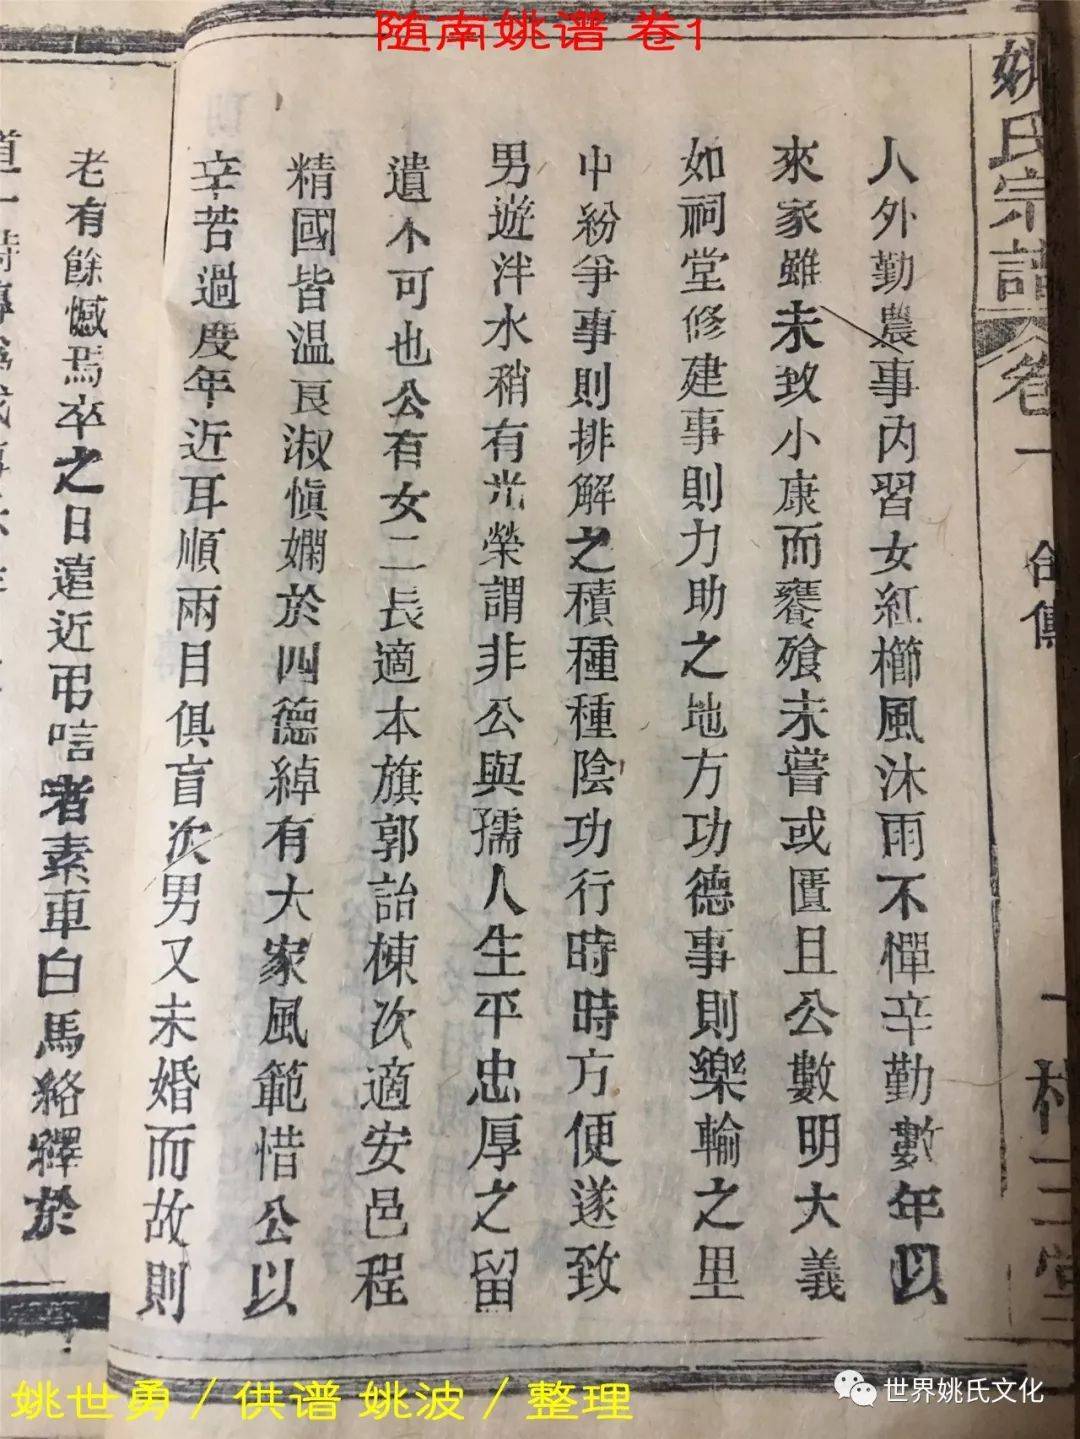 随南姚谱 卷1
姚氏宗譜 卷一 合傳
人外勤農事內習女紅櫛風沐雨不憚辛勤數年以
來家雖未致小康而饔飧未嘗或匱且公數明大義
如祠堂修建事則力助之地方功德事則樂輸之里
中紛爭事則排解之積種種陰功行時時方便遂致
男遊泮水稍有光榮謂非公與孺人生平忠厚之留
遺不可也公有女二長適本旗郭詒棟次適安邑程
精國皆温良淑慎嫻於四德綽有大家風範惜公以
辛苦過度年近耳順兩目俱盲次男又未婚而故則
老有餘憾焉卒之日遠近弔唁者素車白馬絡繹於
姚世勇／供谱 姚波／整理
世界姚氏文化